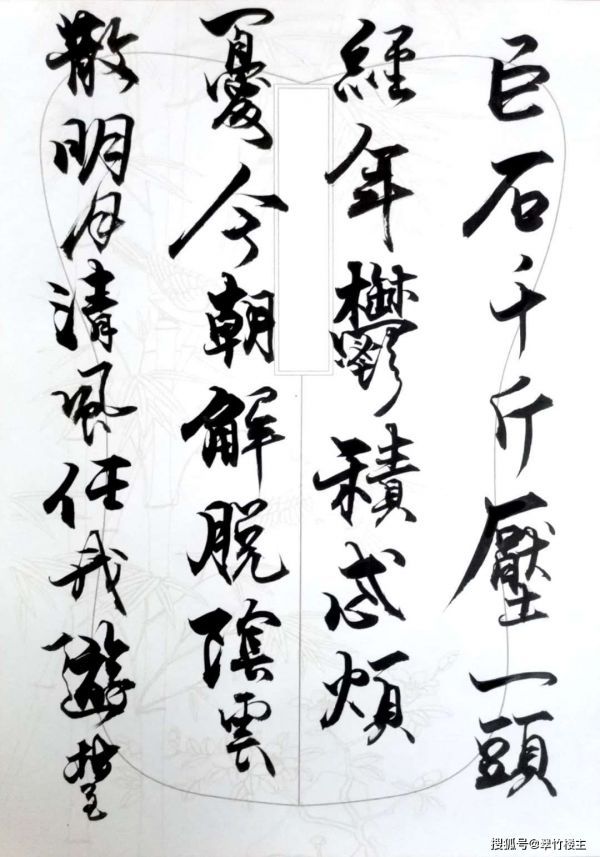 巨石千斤壓一頭
經年鬱積忒煩
憂今朝解脫陰雲
散明月清風任我遊
搜狐号@翠竹楼主